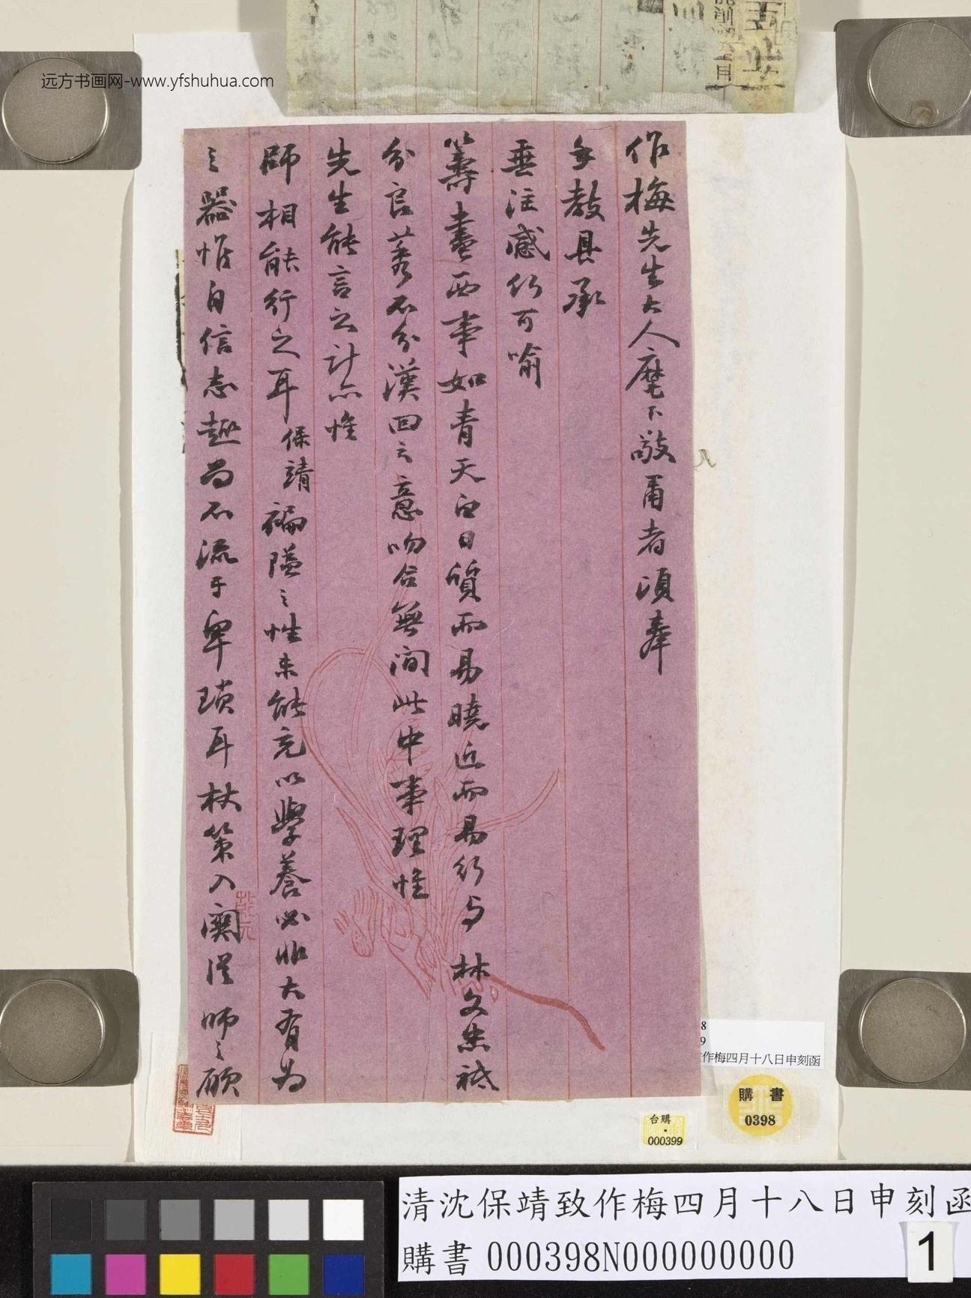 远方书画网-www.yfshuhua.com
作梅先生大人麾下敬甬者頃奉
手教具承
垂注感何可喻
籌畫西事如青天白日質而易曉近而易行与林文忠祗
分良莠不分漢回之意吻合無间此中事理惟
先生能言之計亦惟
師相能行之耳保靖褊隘之性未能充以學養必非大有为
之器惟自信志趣尚不流于卑瑣耳杖策入關從師之願
作梅四月十八日申刻函
購書
0398
台購
000399
清沈保靖致作梅四月十八日申刻函
購書 000398N000000000
1